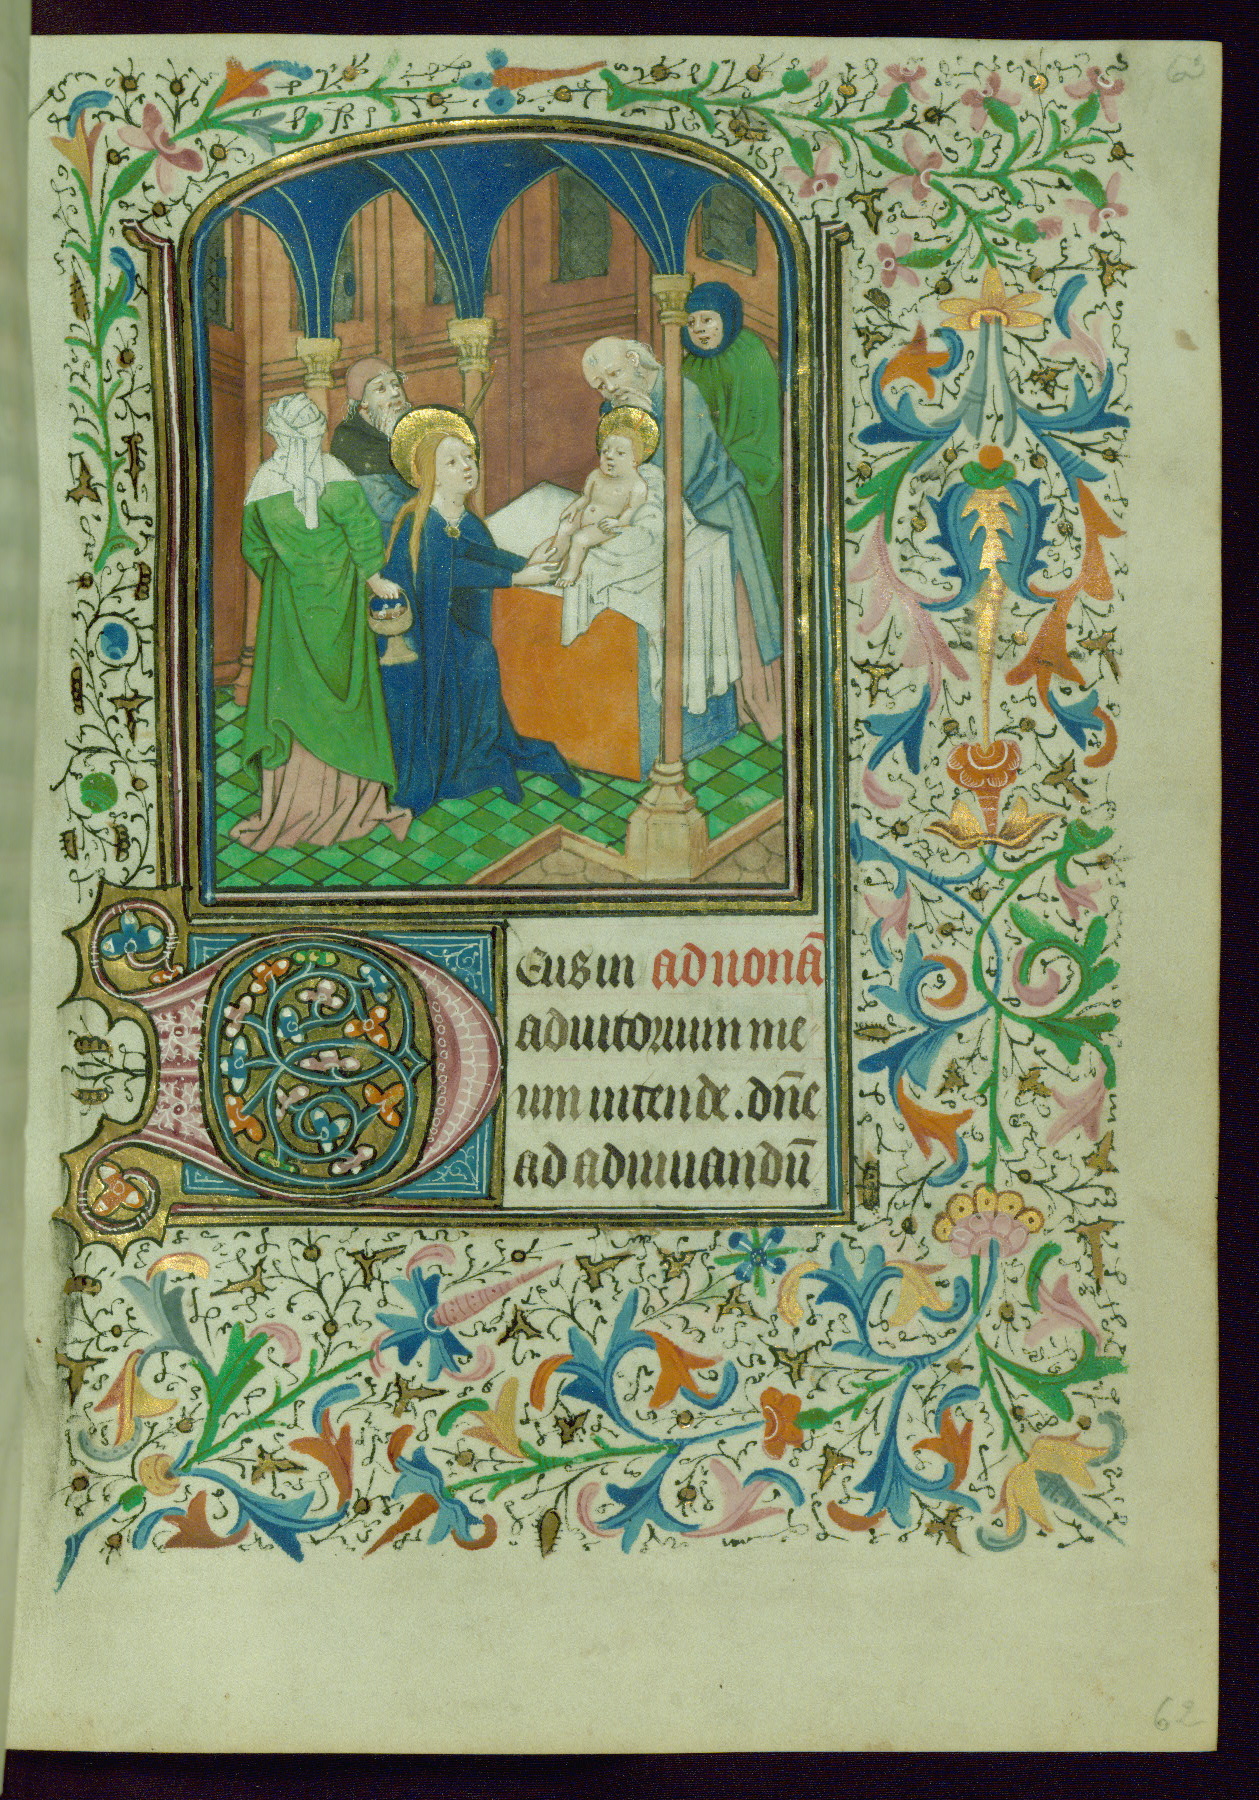 63
Deus in ad nonā
adiutorium me
um intende. dn̄e
ad adiuuandū
62